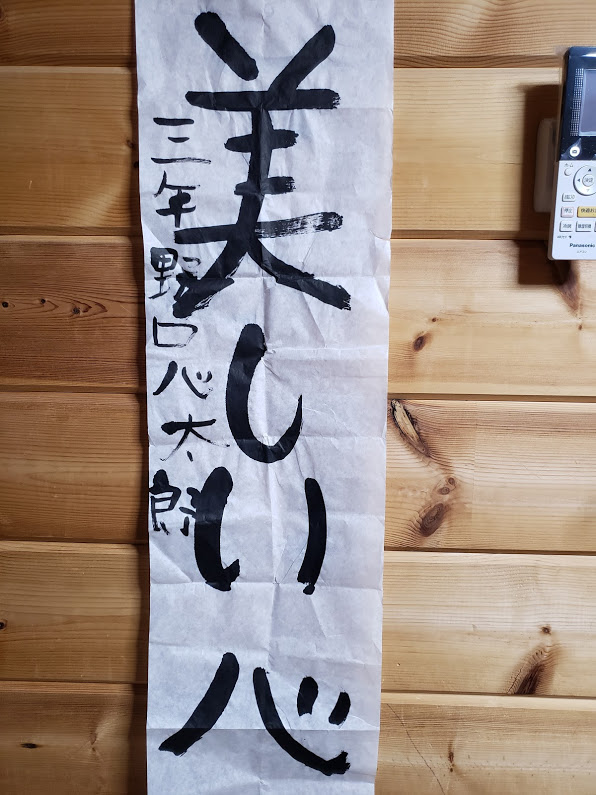 美しい心
三年野口心太郎
Panasonic